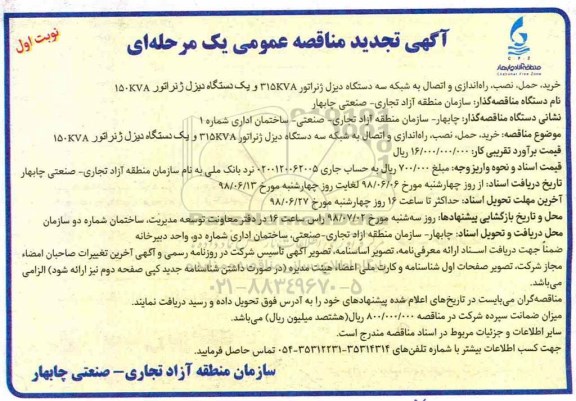 نوبت اول
آگهی تجدید مناقصه عمومی یک مرحله‌ای
منطقه آزاد چابهار
خرید، حمل، نصب، راه‌اندازی و اتصال به شبکه سه دستگاه دیزل ژنراتور ۳۱۵KVA و یک دستگاه دیزل ژنراتور ۱۵۰KVA
نام دستگاه مناقصه‌گذار: سازمان منطقه آزاد تجاری- صنعتی چابهار
نشانی دستگاه مناقصه‌گذار: چابهار- سازمان منطقه آزاد تجاری- صنعتی- ساختمان اداری شماره ۱
موضوع مناقصه: خرید، حمل، نصب، راه‌اندازی و اتصال به شبکه سه دستگاه دیزل ژنراتور ۳۱۵KVA و یک دستگاه دیزل ژنراتور ۱۵۰KVA
قیمت برآورد تقریبی کار: ۱۶/۰۰۰/۰۰۰/۰۰۰ ریال
قیمت اسناد و نحوه واریز وجه: مبلغ ۷۰۰/۰۰۰ ریال به حساب جاری ۰۲۰۰۱۲۰۰۶۲۰۰۵ نرد بانک ملی به نام سازمان منطقه آزاد تجاری- صنعتی چابهار
تاریخ دریافت اسناد: از روز چهارشنبه مورخ ۹۸/۰۶/۰۶ لغایت روز چهارشنبه مورخ ۹۸/۰۶/۱۳
آخرین مهلت تحویل اسناد: حداکثر تا ساعت ۱۶ روز چهارشنبه مورخ ۹۸/۰۶/۲۷
محل و تاریخ بازگشایی پیشنهادها: روز سه‌شنبه مورخ ۹۸/۰۷/۰۲ راس ساعت ۱۶ در دفتر معاونت توسعه مدیریت، ساختمان شماره دو سازمان
محل دریافت و تحویل اسناد: چابهار- سازمان منطقه آزاد تجاری-صنعتی، ساختمان اداری شماره دو، واحد دبیرخانه
ضمناً جهت دریافت اسناد ارائه معرفی‌نامه، تصویر اساسنامه، تصویر آگهی تأسیس شرکت در روزنامه رسمی و آگهی آخرین تغییرات صاحبان امضاء
مجاز شرکت، تصویر صفحات اول شناسنامه و کارت ملی اعضاء هیئت مدیره (در صورت داشتن شناسنامه جدید کپی صفحه دوم نیز ارائه شود) الزامی
می‌باشد.
۰۲۱-۸۸۳۴۹۶۷۰-۵
مناقصه‌گران می‌بایست در تاریخ‌های اعلام شده پیشنهادهای خود را به آدرس فوق تحویل داده و رسید دریافت نمایند.
میزان ضمانت سپرده شرکت در مناقصه ۸۰۰/۰۰۰/۰۰۰ ریال(هشتصد میلیون ریال) می‌باشد.
سایر اطلاعات و جزئیات مربوط در اسناد مناقصه مندرج است.
جهت کسب اطلاعات بیشتر با شماره تلفن‌های ۳۵۳۱۴۳۱۴-۳۵۳۱۲۲۳۱-۰۵۴ تماس حاصل فرمایید.
سازمان منطقه آزاد تجاری- صنعتی چابهار